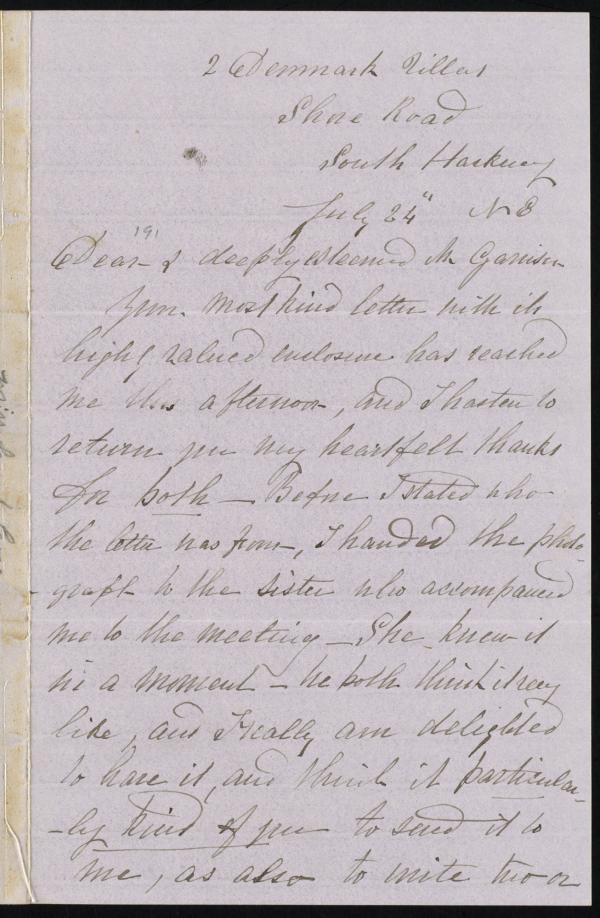 2 Denmark Villas
Shore Road
South Hackney
July 24" N E
191
Dear & deeply esteemed Mr Garrison
Your most kind letter with its
highly valued enclosure has reached
me this afternoon, and I hasten to
return you my heartfelt thanks
for both — Before I stated who
the letter was from, I handed the photo-
-graph to the sister who accompanied
me to the meeting — She knew it
in a moment — we both think it very
like, and I really am delighted
to have it, and think it particular-
-ly kind of you to send it to
me, as also to write two or